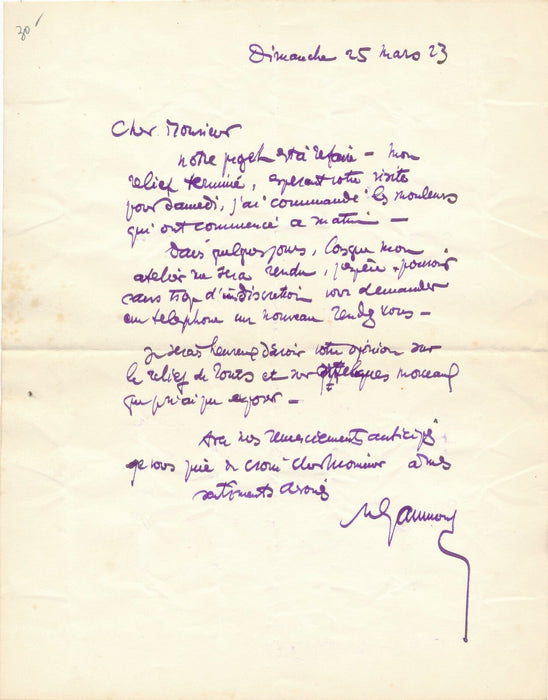 30
Dimanche 25 mars 23
Cher Monsieur
notre projet est à refaire – mon
relief terminé, espérant votre visite
pour Samedi, j'ai commandé les mouleurs
qui ont commencé ce matin –
Dans quelques jours, lorsque mon
atelier me sera rendu, j'espère pouvoir
sans trop d'indiscrétion vous demander
un telephone un nouveau rendez vous –
Je serais heureux d'avoir votre opinion sur
le relief de Tours et sur quelques morceaux
que je n'ai pu exposer –
Avec nos remerciements anticipés
je vous prie de croire Cher Monsieur à mes
sentiments dévoués